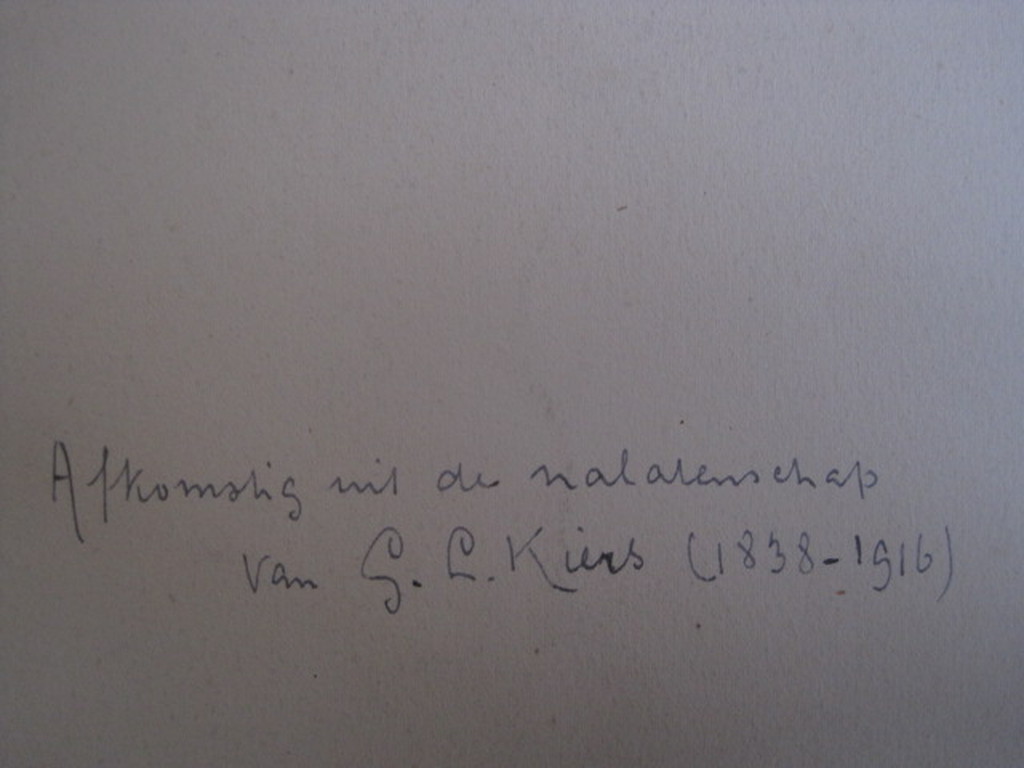 Afkomstig uit de nalatenschap
van G. L. Kiers (1838-1916)